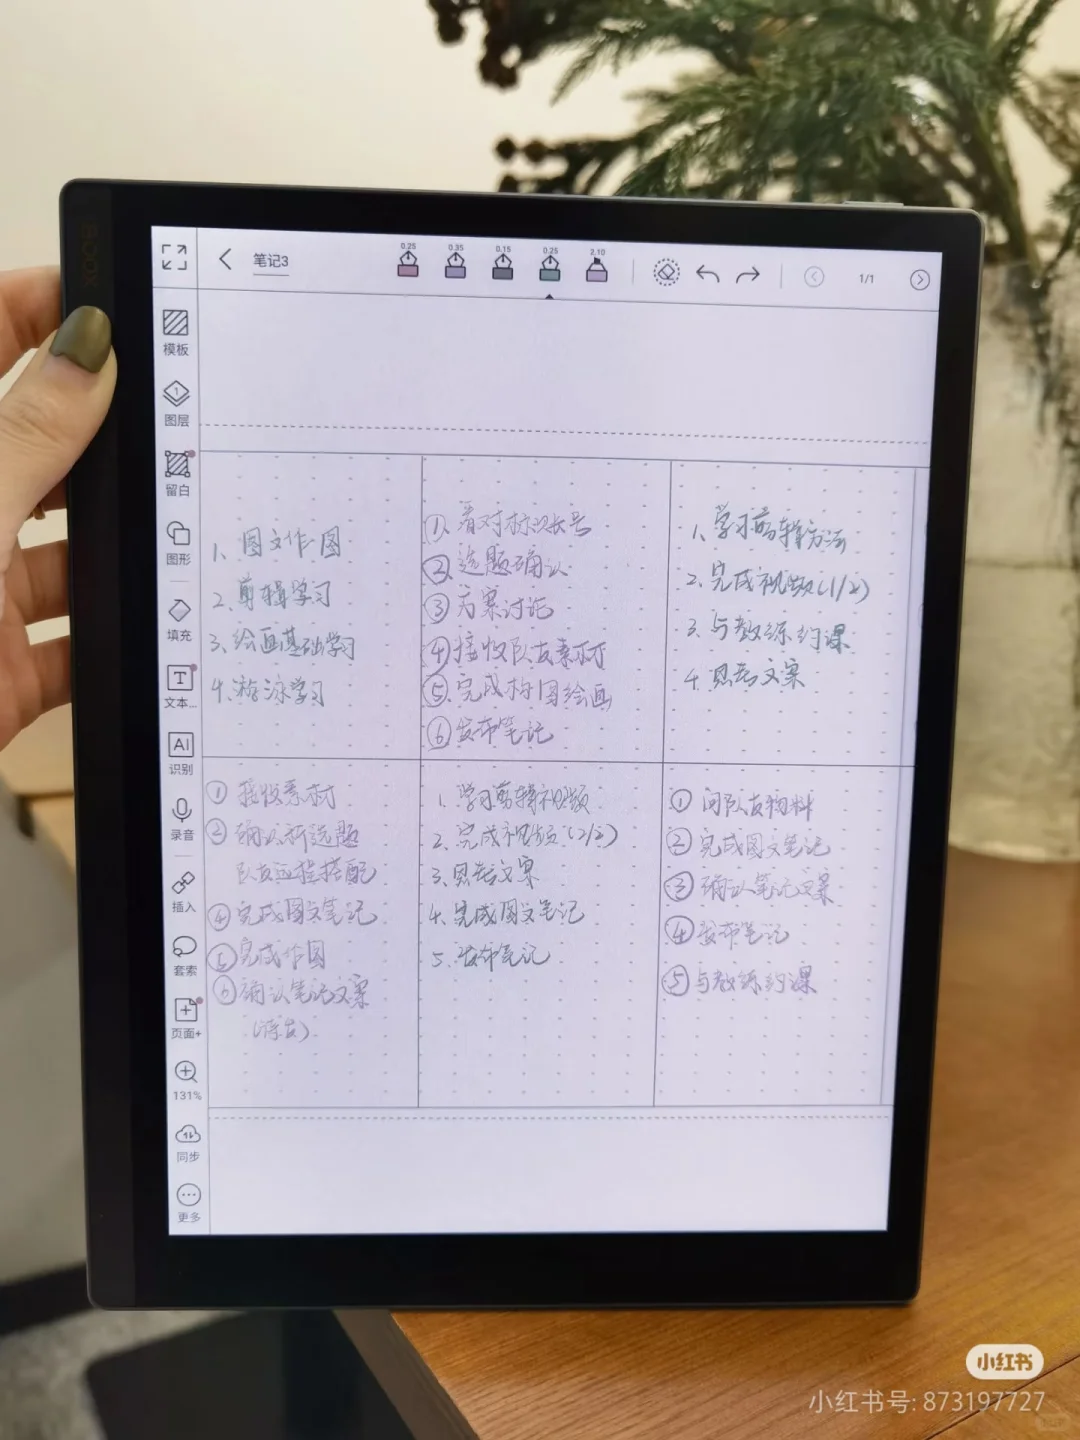 BOOX
笔记3
0.25
0.35
0.15
0.25
2.10
1/1
模板
图层
留白
图形
填充
文本...
AI
识别
录音
插入
套索
页面+
131%
同步
更多
1、图文作图
2、剪辑学习
3、绘画基础学习
4、游泳学习
① 看对标账号
② 选题确认
③ 方案讨论
④ 接收队友素材
⑤ 完成构图绘画
⑥ 发布笔记
1、学习剪辑方法
2、完成视频(1/2)
3、与教练约课
4、思考文案
① 接收素材
② 确认新选题
队友远程搭配
④ 完成图文笔记
⑤ 完成作图
⑥ 确认笔记文案
1、学习剪辑视频
2、完成视频(2/2)
3、思考文案
4、完成图文笔记
5、发布笔记
① 问队友物料
② 完成图文笔记
③ 确认笔记文案
④ 发布笔记
⑤ 与教练约课
小红书
小红书号: 873197727